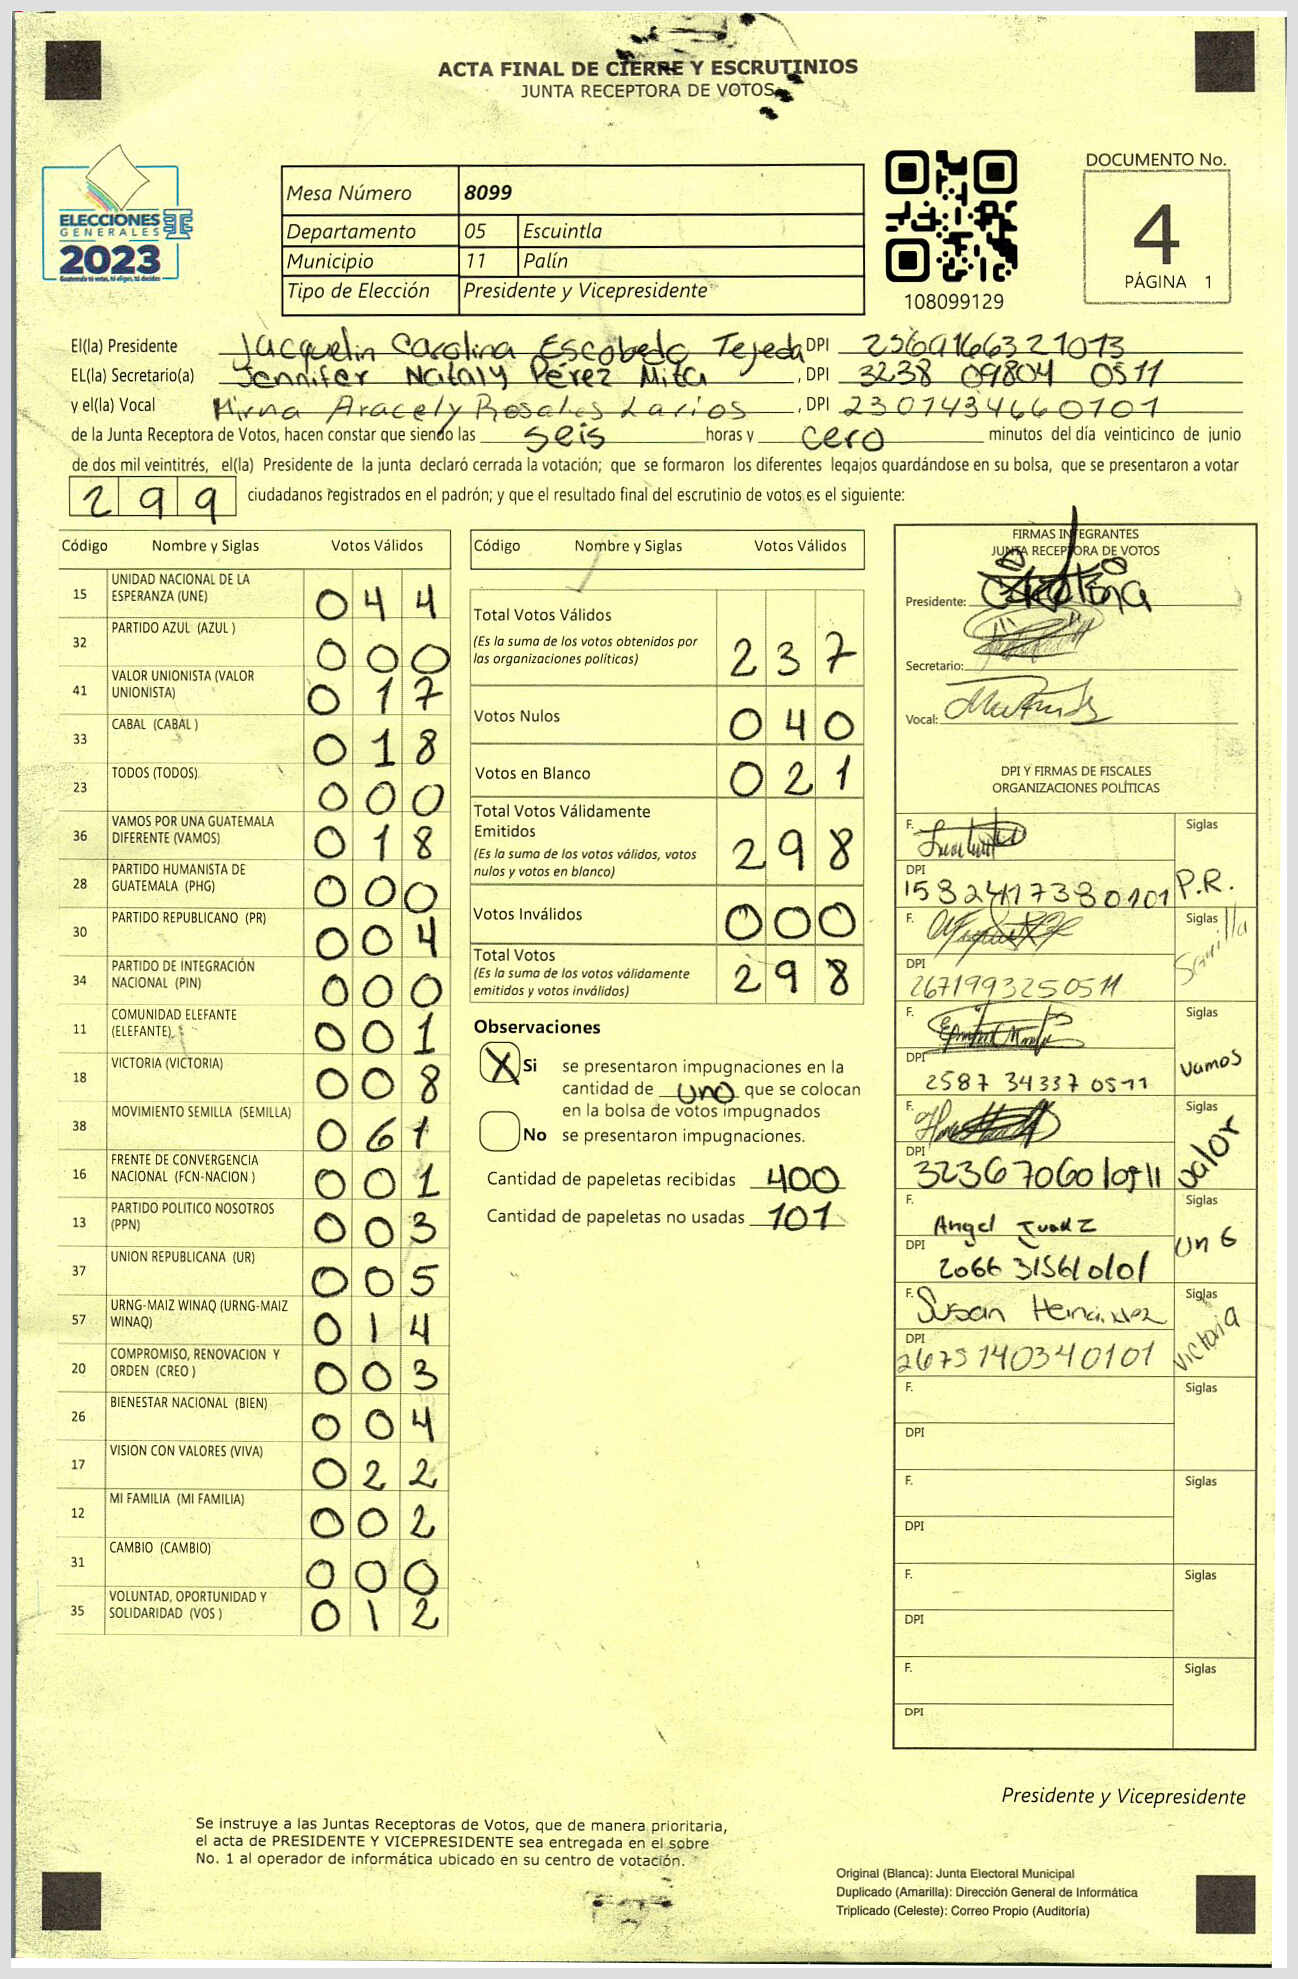 ACTA FINAL DE CIERRE Y ESCRUTINIOS
JUNTA RECEPTORA DE VOTOS
ELECCIONES
GENERALES
2023
Guatemala tú votas, tú eliges, tú decides
Mesa Número 8099
Departamento 05 Escuintla
Municipio 11 Palín
Tipo de Elección Presidente y Vicepresidente
108099129
DOCUMENTO No.
4
PÁGINA 1
El(la) Presidente Jacquelin Carolina Escobedo Tejeda DPI 2569166321013
EL(la) Secretario(a) Jennifer Nataly Pérez Mita, DPI 3238 09804 0511
y el(la) Vocal Mirna Aracely Rosales Larios, DPI 2307434660101
de la Junta Receptora de Votos, hacen constar que siendo las seis horas y cero minutos del día veinticinco de junio
de dos mil veintitrés, el(la) Presidente de la junta declaró cerrada la votación; que se formaron los diferentes legajos guardándose en su bolsa, que se presentaron a votar
299 ciudadanos registrados en el padrón; y que el resultado final del escrutinio de votos es el siguiente:
Código Nombre y Siglas Votos Válidos
15 UNIDAD NACIONAL DE LA ESPERANZA (UNE) 044
32 PARTIDO AZUL (AZUL ) 000
41 VALOR UNIONISTA (VALOR UNIONISTA) 017
33 CABAL (CABAL ) 018
23 TODOS (TODOS) 000
36 VAMOS POR UNA GUATEMALA DIFERENTE (VAMOS) 018
28 PARTIDO HUMANISTA DE GUATEMALA (PHG) 000
30 PARTIDO REPUBLICANO (PR) 004
34 PARTIDO DE INTEGRACIÓN NACIONAL (PIN) 000
11 COMUNIDAD ELEFANTE (ELEFANTE) 001
18 VICTORIA (VICTORIA) 008
38 MOVIMIENTO SEMILLA (SEMILLA) 061
16 FRENTE DE CONVERGENCIA NACIONAL (FCN-NACION ) 001
13 PARTIDO POLITICO NOSOTROS (PPN) 003
37 UNION REPUBLICANA (UR) 005
57 URNG-MAIZ WINAQ (URNG-MAIZ WINAQ) 014
20 COMPROMISO, RENOVACION Y ORDEN (CREO ) 003
26 BIENESTAR NACIONAL (BIEN) 004
17 VISION CON VALORES (VIVA) 022
12 MI FAMILIA (MI FAMILIA) 002
31 CAMBIO (CAMBIO) 000
35 VOLUNTAD, OPORTUNIDAD Y SOLIDARIDAD (VOS ) 012
Código Nombre y Siglas Votos Válidos
Total Votos Válidos 237
(Es la suma de los votos obtenidos por
las organizaciones políticas)
Votos Nulos 040
Votos en Blanco 021
Total Votos Válidamente
Emitidos 298
(Es la suma de los votos válidos, votos
nulos y votos en blanco)
Votos Inválidos 000
Total Votos 298
(Es la suma de los votos válidamente
emitidos y votos inválidos)
Observaciones
X Si se presentaron impugnaciones en la
cantidad de uno que se colocan
en la bolsa de votos impugnados
No se presentaron impugnaciones.
Cantidad de papeletas recibidas 400
Cantidad de papeletas no usadas 101
FIRMAS INTEGRANTES
JUNTA RECEPTORA DE VOTOS
Presidente:
Secretario:
Vocal:
DPI Y FIRMAS DE FISCALES
ORGANIZACIONES POLÍTICAS
F. Siglas
DPI P.R.
1582417380101
F. Siglas
DPI Semilla
2671993250511
F. Siglas
DPI Vamos
2587 34337 0511
F. Siglas
DPI Valor
3236706010511
F. Angel Juarez Siglas
DPI UnE
2066 315610101
F. Susan Hernández Siglas
DPI Victoria
2675140340101
F. Siglas
DPI
F. Siglas
DPI
F. Siglas
DPI
F. Siglas
DPI
Presidente y Vicepresidente
Se instruye a las Juntas Receptoras de Votos, que de manera prioritaria,
el acta de PRESIDENTE Y VICEPRESIDENTE sea entregada en el sobre
No. 1 al operador de informática ubicado en su centro de votación.
Original (Blanca): Junta Electoral Municipal
Duplicado (Amarilla): Dirección General de Informática
Triplicado (Celeste): Correo Propio (Auditoría)